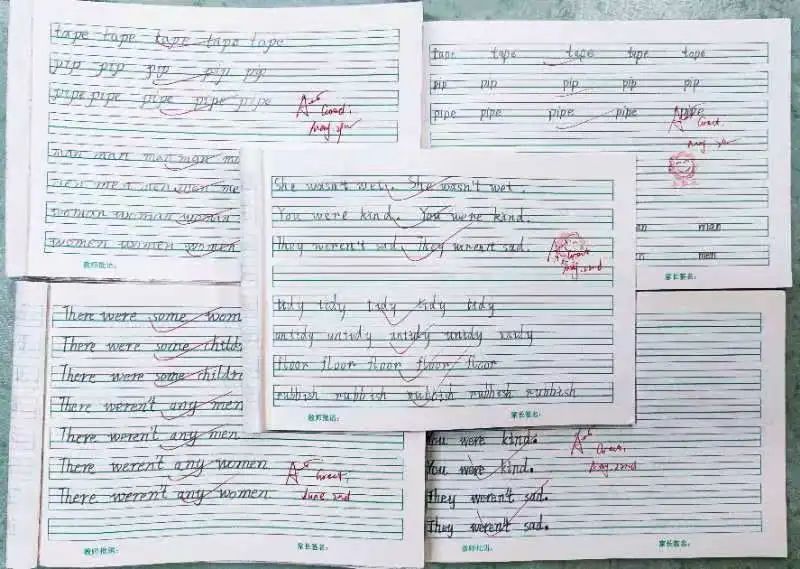 tape tape tape tape tape
pip pip pip pip pip
pipe pipe pipe pipe pipe
A++
Great,
man man man man
men men men men me
woman woman woman
women women women
教师批语:
tape tape tape tape tape
pip pip pip pip pip
pipe pipe pipe pipe pipe
Great,
man
men
家长签名:
She wasn't well. She wasn't
You were kind. You were kind.
They weren't sad. They weren't sad.
May 22nd
tidy tidy tidy tidy tidy
untidy untidy untidy untidy
floor floor floor floor floor
rubbish rubbish rubbish rubbish rubbish
教师批语: 家长签名:
There were some wom
There were some childr
There were some children
There weren't any men
There weren't any men
There weren't any women
There weren't any women
A++
Great,
June 2nd
教师批语: 家长签名:
You were kind.
You were kind.
They weren't sad.
They weren't sad.
A++
Great,
May 22nd
教师批语: 家长签名: